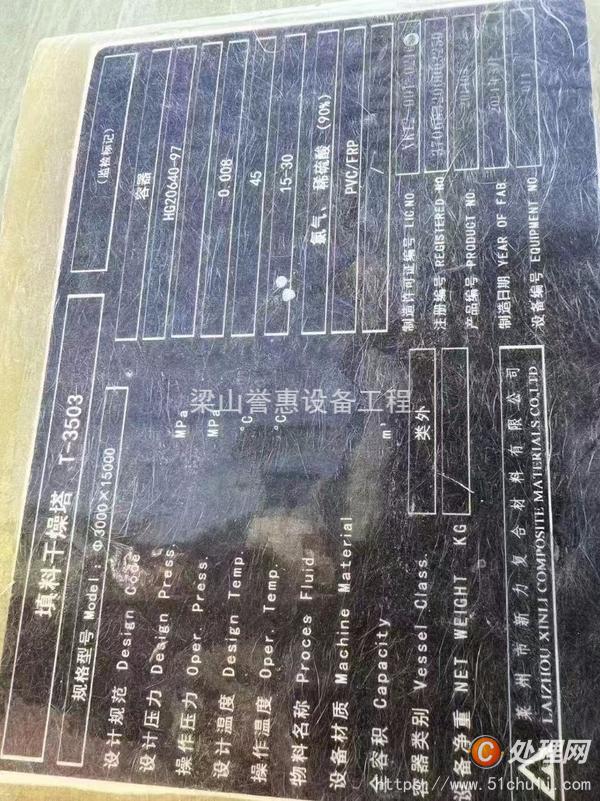 填料干燥塔 T-3503
(监检标记)
规格型号 Model: Φ3000×15000
容器
设计规范 Design Code HG20640-97
设计压力 Design Press. MPa
操作压力 Oper. Press. MPa 0.008
设计温度 Design Temp. ℃ 45
操作温度 Oper. Temp. ℃ 15-30
物料名称 Proces Fluid 氯气、稀硫酸 (90%)
设备材质 Machine Material PVC/FRP
全容积 Capacity m³ /
容器类别 Vessel Class. 类外
制造许可证编号 LIC.NO
注册编号 REGISTERED NO
设备净重 NET WEIGHT KG /
产品编号 PRODUCT NO.
制造日期 YEAR OF FAB
设备编号 EQUIPMENT NO.
莱州市新力复合材料有限公司
LAIZHOU XINLI COMPOSITE MATERIALS CO.,LTD
梁山誉惠设备工程
C 处理网
https://www.51chuli.com